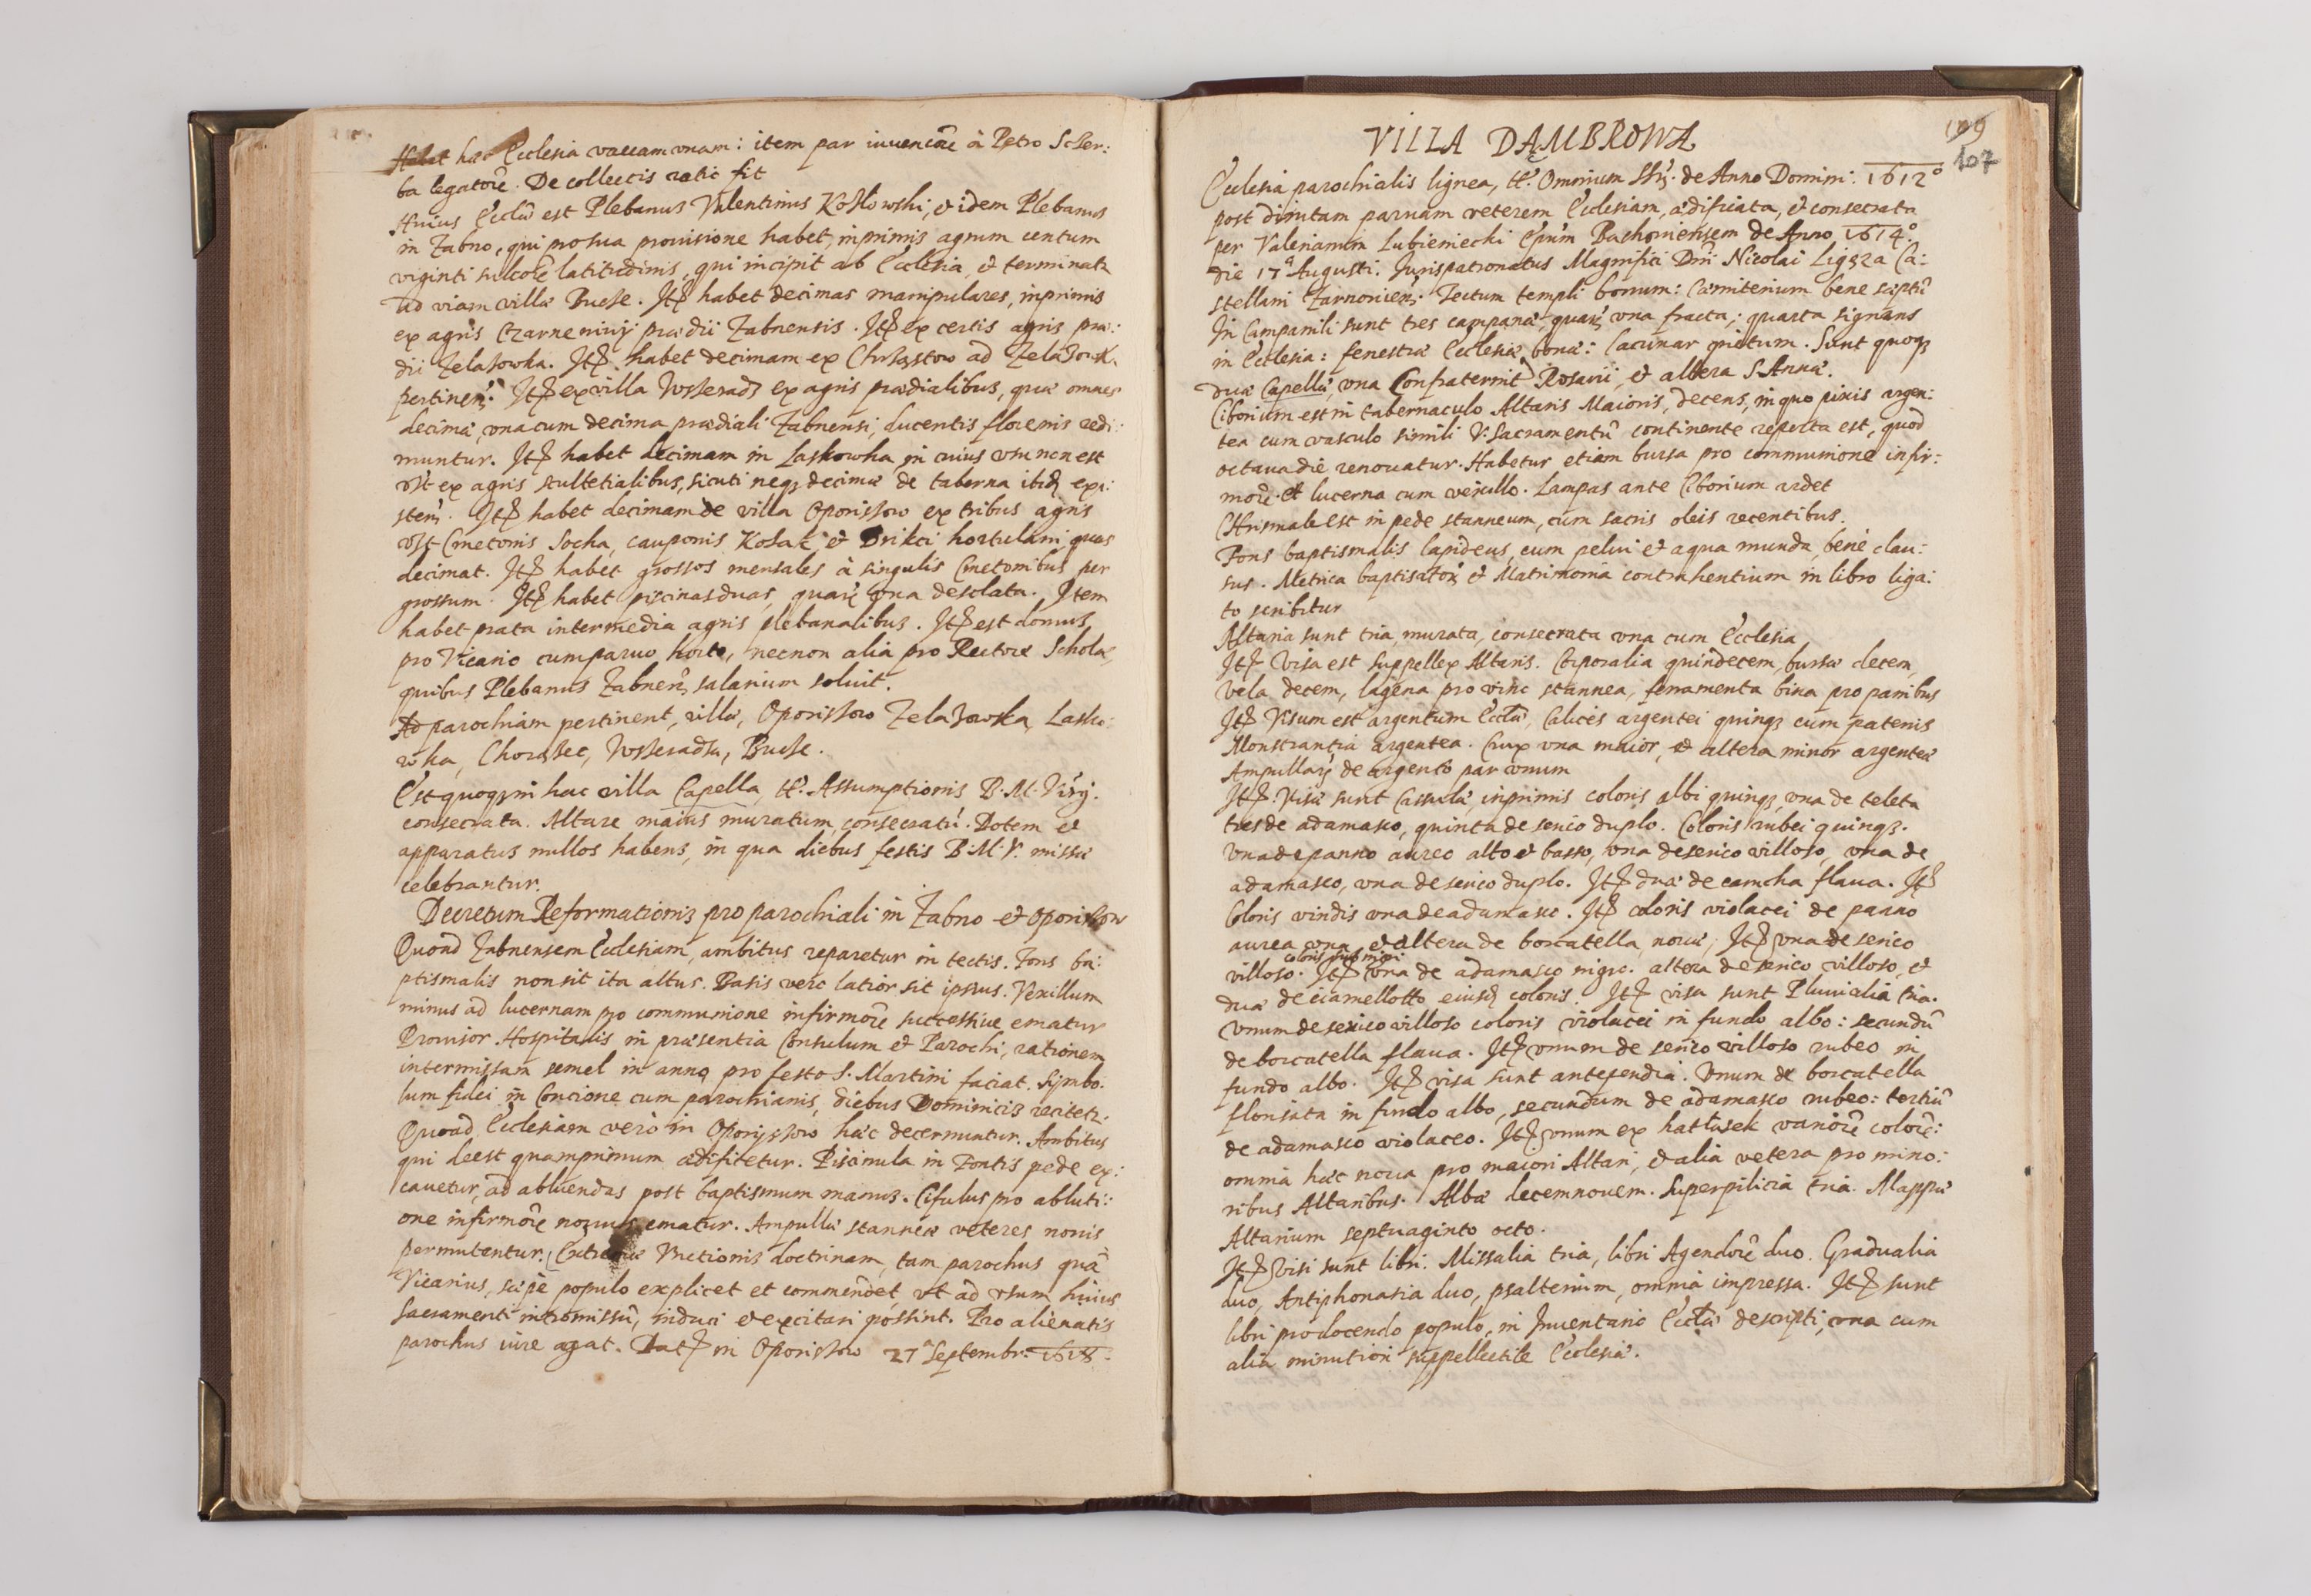 Habet haec Ecclesia vaccam vnam: item par iuuencorũ à Petro Sczer:
ba legatorũ. De collectis ratio fit
Huius Eccłae est Plebanus Valentinus Kosłowski, et idem Plebanus
in Zabno, qui pro sua prouisione habet, inprimis agrum centum
viginti sulcorũ latitudinis, qui incipit ab Ecclesia, et terminatr
ad viam villae Bucze. Itẽ habet decimas manipulares, inprimis
ex agris praedii Zabnensis. Itẽ ex certis agris prae:
dii Zelazowka. Itẽ habet decimam ex ad Zelazowk.
pertineñ. Itẽ ex villa ex agris praedialibus, quae omnes
decimae, vna cum decima praediali Zabnensi, ducentis florenis redi:
muntur. Itẽ habet decimam in Laskowka, in cuius vsu non est
vłt ex agris scultetialibus, sicuti neq3 decimae de taberna ibid exi:
steñ. Itẽ habet decimam de villa Oporissow ex tribus agris
vłt Cmetonis Socha, cauponis Kozak et Brikci hortulani, quas
decimat. Itẽ habet grossos mensales à singulis Cmetonibus per
grossum. Itẽ habet piscinas duas, quarũ vna desolata. Item
habet prata intermedia agris plebanalibus. Itẽ est domus
pro Vicario cum paruo horto, necnon alia pro Rectore Scholae,
quibus Plebanus Zabneñ salarium soluit.
Ad parochiam pertinent, villae, Oporissow Zelazowka, Lasko:
wka, Chorzsec, Bucze.
Est quoq3 in hac villa Capella, tt. Assumptionis B. M. Virg.
consecrata. Altare maius muratum, consecratũ. Dotem et
apparatus nullos habens, in qua diebus festis B. M. V. missae
celebrantur.
Decretum Reformationis pro parochiali in Zabno et Oporissow
Quoad Zabnensem Ecclesiam, ambitus reparetur in tectis. Fons ba:
ptismalis non sit ita altus. Basis vero latior sit ipsius. Vexillum
minus ad lucernam pro communione infirmorũ successiue ematur
Prouisor Hospitalis in praesentia Consulum et Parochi, rationem
intermissam semel in anno pro festo S. Martini faciat. Symbo:
lum fidei in Concione cum parochianis, diebus Dominicis recitetr.
Quoad Ecclesiam verò in Oporyssow haec decernuntur. Ambitus
qui deest quamprimum aedificetur. Piscinula in Fontis pede ex:
cauetur, ad abluendas post baptismum manus. Cifulus pro abluti:
one infirmorũ nouus ematur. Ampullae stanneae veteres nouis
permutentur. Extremae Vnctionis doctrinam, tam parochus quã
Vicarius, saepe populo explicet et commendet, vt ad vsum huius
Sacramenti intromissũ, induci et excitari possint. Pro alienatis
parochus iure agat. Datẽ in Oporissow 27a Septembr: 1618.
VILLA DAMBROWA
109
107
Ecclesia parochialis lignea, tt. Omnium Stõrz. de Anno Domini. 1612o
post dirutam parnam veterem Ecclesiam, aedificata, et consecrata
per Valerianum Lubieniecki Ep̃um Bachouiensem de Anno 1614o
die 17a Augusti. Jurispatronatus Magnifici Dñi Nicolai Ligęza Ca:
stellani Zarnouieñ. Tectum templi bonum: Caemiterium bene saeptũ
In Campanili sunt tres campanae, quarũ vna fracta; quarta signans
in Ecclesia: fenestrae Ecclesiae bonae: Lacunar pictum. Sunt quoq3
duae Capellae, vna Confraternit Rosarii, et altera S. Annae.
Ciborium est in tabernaculo Altaris Maioris, decens, in quo pixis argen:
tea cum vasculo simili V. Sacramentũ continente reperta est, quod
octaua die renouatur. Habetur etiam bursa pro communione infir:
morũ et lucerna cum vexillo. Lampas ante Ciborium ardet
Chrismale est in pede stanneum, cum sacris oleis recentibus.
Fons baptismalis lapideus, cum pelui et aqua munda, bene clau:
sus. Metrica baptisatorũ et Matrimonia contrahentium in libro liga:
to scribitur
Altaria sunt tria, murata, consecrata vna cum Ecclesia
Itẽ Visa est suppellex Altaris. Corporalia quindecem, bursae decem,
vela decem, lagena pro vino stannea, ferramenta bina pro panibus
Itẽ Visum est argentum Eccłae, Calices argentei quinq3 cum patenis
Monstrantia argentea. Crux vna maior, et altera minor argentea
Ampullarũ de argento par vnum
Itẽ. Visae sunt Casulae, inprimis coloris albi quinq3, vna de teleta
tres de adamasco, quinta de serico duplo. Coloris rubei quinq3.
vna de panno aureo alto et basso, vna de serico villoso, vna de
adamasco, vna de serico duplo. Itẽ duae de camcha flaua. Itẽ
Coloris viridis vna de adamasco. Itẽ coloris violacei de panno
aurea vna, et altera de borcatella, nouae; Itẽ vna de serico
villoso. Itẽ coloris nigri vna de adamasco nigro. altera de serico villoso, et
duae de ciamellotto eiusd coloris. Itẽ visa sunt Pluuialia tria.
vnum de serico villoso coloris violacei in fundo albo: secundũ
de borcatella flaua. Itẽ vnum de serico villoso rubeo in
fundo albo. Itẽ visa sunt antependia. Vnum de borcatella
florisata in fundo albo, secundum de adamasco rubeo: tertiũ
de adamasco violaceo. Itẽ vnum ex hatłasek variorũ colorũ:
omnia haec noua pro maiori Altari, et alia vetera pro mino:
ribus Altaribus. Albae decemnouem. Superpilicia tria. Mappae
Altarium septuaginto octo.
Itẽ visi sunt libri. Missalia tria, libri Agendorũ duo. Gradualia
duo, Antiphonaria duo, psalterium, omnia impressa. Itẽ sunt
libri pro docendo populo, in Inuentario Eccłae descripti, vna cum
alia minutiori suppellectile Ecclesiae.